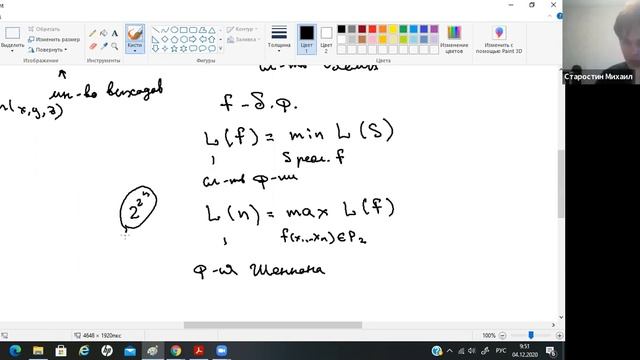 Выделить
Изменить размер
Повернуть
Изображение
Инструменты
Кисти
Фигуры
Контур
Заливка
Толщина
Цвет 1
Цвет 2
Цвета
Изменение цветов
Изменить с помощью Paint 3D
Старостин Михаил
сл-ть схемы
мн-во выходов
(x,y,z)
f - δ.φ.
L(f) = min L(S)
S реал. f
сл-ть ф-ии
2^2^n
L(n) = max L(f)
f(x₁...xₙ)∈P₂
ф-ия Шеннона
4646 × 1920пкс
100%
РУС
9:51
04.12.2020